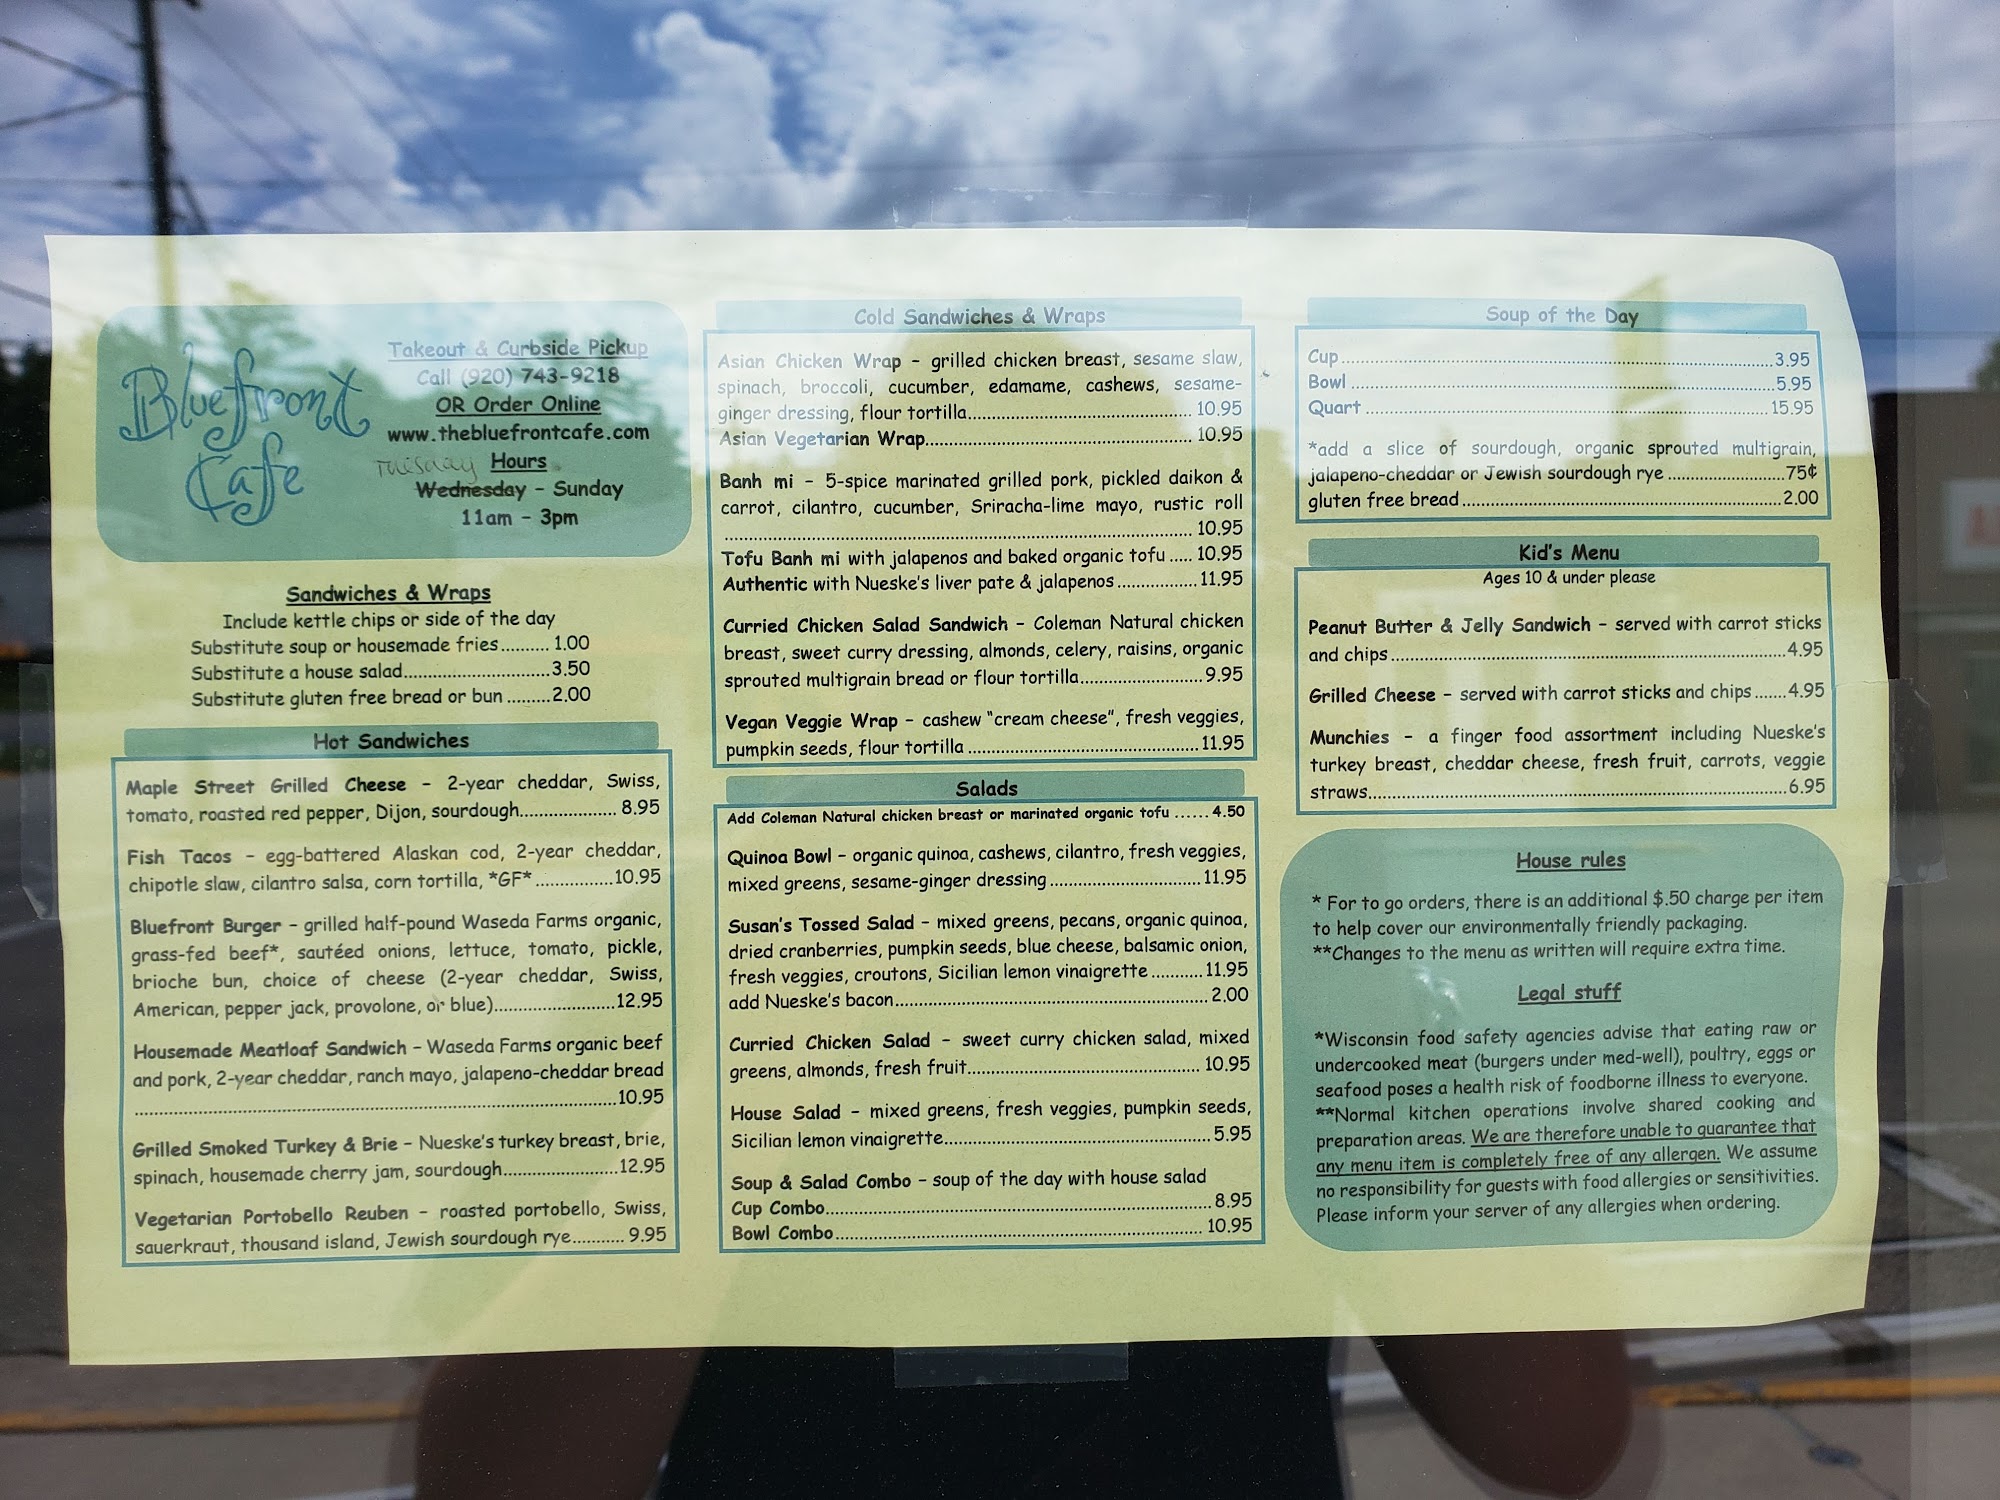 Bluefront
Cafe
Takeout & Curbside Pickup
Call (920) 743-9218
OR Order Online
www.thebluefrontcafe.com
Tuesday Hours
Wednesday - Sunday
11am - 3pm
Sandwiches & Wraps
Include kettle chips or side of the day
Substitute soup or housemade fries.......... 1.00
Substitute a house salad...........................3.50
Substitute gluten free bread or bun .........2.00
Hot Sandwiches
Maple Street Grilled Cheese - 2-year cheddar, Swiss,
tomato, roasted red pepper, Dijon, sourdough.................... 8.95
Fish Tacos - egg-battered Alaskan cod, 2-year cheddar,
chipotle slaw, cilantro salsa, corn tortilla, *GF*................10.95
Bluefront Burger - grilled half-pound Waseda Farms organic,
grass-fed beef*, sautéed onions, lettuce, tomato, pickle,
brioche bun, choice of cheese (2-year cheddar, Swiss,
American, pepper jack, provolone, or blue).........................12.95
Housemade Meatloaf Sandwich - Waseda Farms organic beef
and pork, 2-year cheddar, ranch mayo, jalapeno-cheddar bread
....................................................................................10.95
Grilled Smoked Turkey & Brie - Nueske's turkey breast, brie,
spinach, housemade cherry jam, sourdough.......................12.95
Vegetarian Portobello Reuben - roasted portobello, Swiss,
sauerkraut, thousand island, Jewish sourdough rye........... 9.95
Cold Sandwiches & Wraps
Asian Chicken Wrap - grilled chicken breast, sesame slaw,
spinach, broccoli, cucumber, edamame, cashews, sesame-
ginger dressing, flour tortilla........................................... 10.95
Asian Vegetarian Wrap.................................................... 10.95
Banh mi - 5-spice marinated grilled pork, pickled daikon &
carrot, cilantro, cucumber, Sriracha-lime mayo, rustic roll
.................................................................................... 10.95
Tofu Banh mi with jalapenos and baked organic tofu ..... 10.95
Authentic with Nueske's liver pate & jalapenos.................11.95
Curried Chicken Salad Sandwich - Coleman Natural chicken
breast, sweet curry dressing, almonds, celery, raisins, organic
sprouted multigrain bread or flour tortilla.........................9.95
Vegan Veggie Wrap - cashew "cream cheese", fresh veggies,
pumpkin seeds, flour tortilla ..............................................11.95
Salads
Add Coleman Natural chicken breast or marinated organic tofu ......4.50
Quinoa Bowl - organic quinoa, cashews, cilantro, fresh veggies,
mixed greens, sesame-ginger dressing ..............................11.95
Susan's Tossed Salad - mixed greens, pecans, organic quinoa,
dried cranberries, pumpkin seeds, blue cheese, balsamic onion,
fresh veggies, croutons, Sicilian lemon vinaigrette...........11.95
add Nueske's bacon.............................................................. 2.00
Curried Chicken Salad - sweet curry chicken salad, mixed
greens, almonds, fresh fruit.............................................. 10.95
House Salad - mixed greens, fresh veggies, pumpkin seeds,
Sicilian lemon vinaigrette.....................................................5.95
Soup & Salad Combo - soup of the day with house salad
Cup Combo............................................................................. 8.95
Bowl Combo......................................................................... 10.95
Soup of the Day
Cup.....................................................................................3.95
Bowl ....................................................................................5.95
Quart ................................................................................15.95
*add a slice of sourdough, organic sprouted multigrain,
jalapeno-cheddar or Jewish sourdough rye ........................75¢
gluten free bread................................................................2.00
Kid's Menu
Ages 10 & under please
Peanut Butter & Jelly Sandwich - served with carrot sticks
and chips..............................................................................4.95
Grilled Cheese - served with carrot sticks and chips.......4.95
Munchies - a finger food assortment including Nueske's
turkey breast, cheddar cheese, fresh fruit, carrots, veggie
straws...................................................................................6.95
House rules
* For to go orders, there is an additional $.50 charge per item
to help cover our environmentally friendly packaging.
**Changes to the menu as written will require extra time.
Legal stuff
*Wisconsin food safety agencies advise that eating raw or
undercooked meat (burgers under med-well), poultry, eggs or
seafood poses a health risk of foodborne illness to everyone.
**Normal kitchen operations involve shared cooking and
preparation areas. We are therefore unable to guarantee that
any menu item is completely free of any allergen. We assume
no responsibility for guests with food allergies or sensitivities.
Please inform your server of any allergies when ordering.